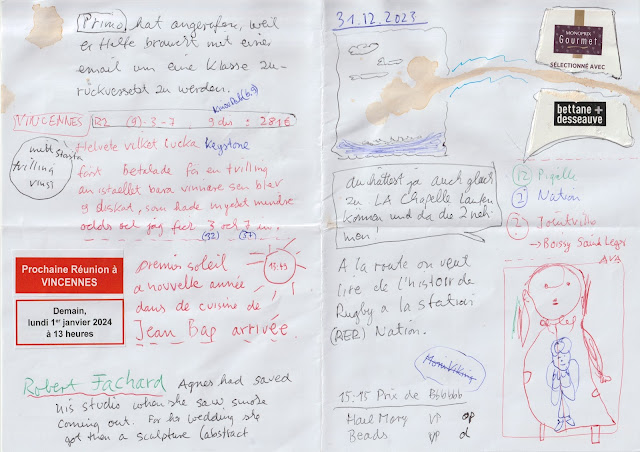 Primo hat angerufen, weil
er Hilfe braucht mit einer
email um eine Klasse zu-
rückversetzt zu werden.
VINCENNES R2 (9)-3-7 9 dts : 281€
Helvete vilket lucka Keystone
mitt största
tvilling
vinst
först betalade för en tvilling
an istället bara vinnare sen blev
9 diskat, som hade mycket mindre
odds och jag fick 3 och 7 in.
(32) (37)
Prochaine Réunion à
VINCENNES
Demain,
lundi 1er janvier 2024
à 13 heures
premier soleil
a nouvelle année
dans de cuisine de
Jean Bap arrivée
Robert Fachard Agnes had saved
his studio when she saw smoke
coming out. For her wedding she
got then a sculpture (abstract
31.12.2023
MONOPRIX
Gourmet
SÉLECTIONNÉ AVEC
bettane +
desseauve
du hättest ja auch gleich
zu LA Chapelle laufen
können und da die 2 neh-
men!
12 Pigalle
2 Nation
2 Joinville
→ Boissy Saint Leger
A la route on veut
lire de l'histoir de
Rugby a la station
(RER) Nation.
15:15 Prix de Bbbbbb
Hail Mary VP op
Beads VP d